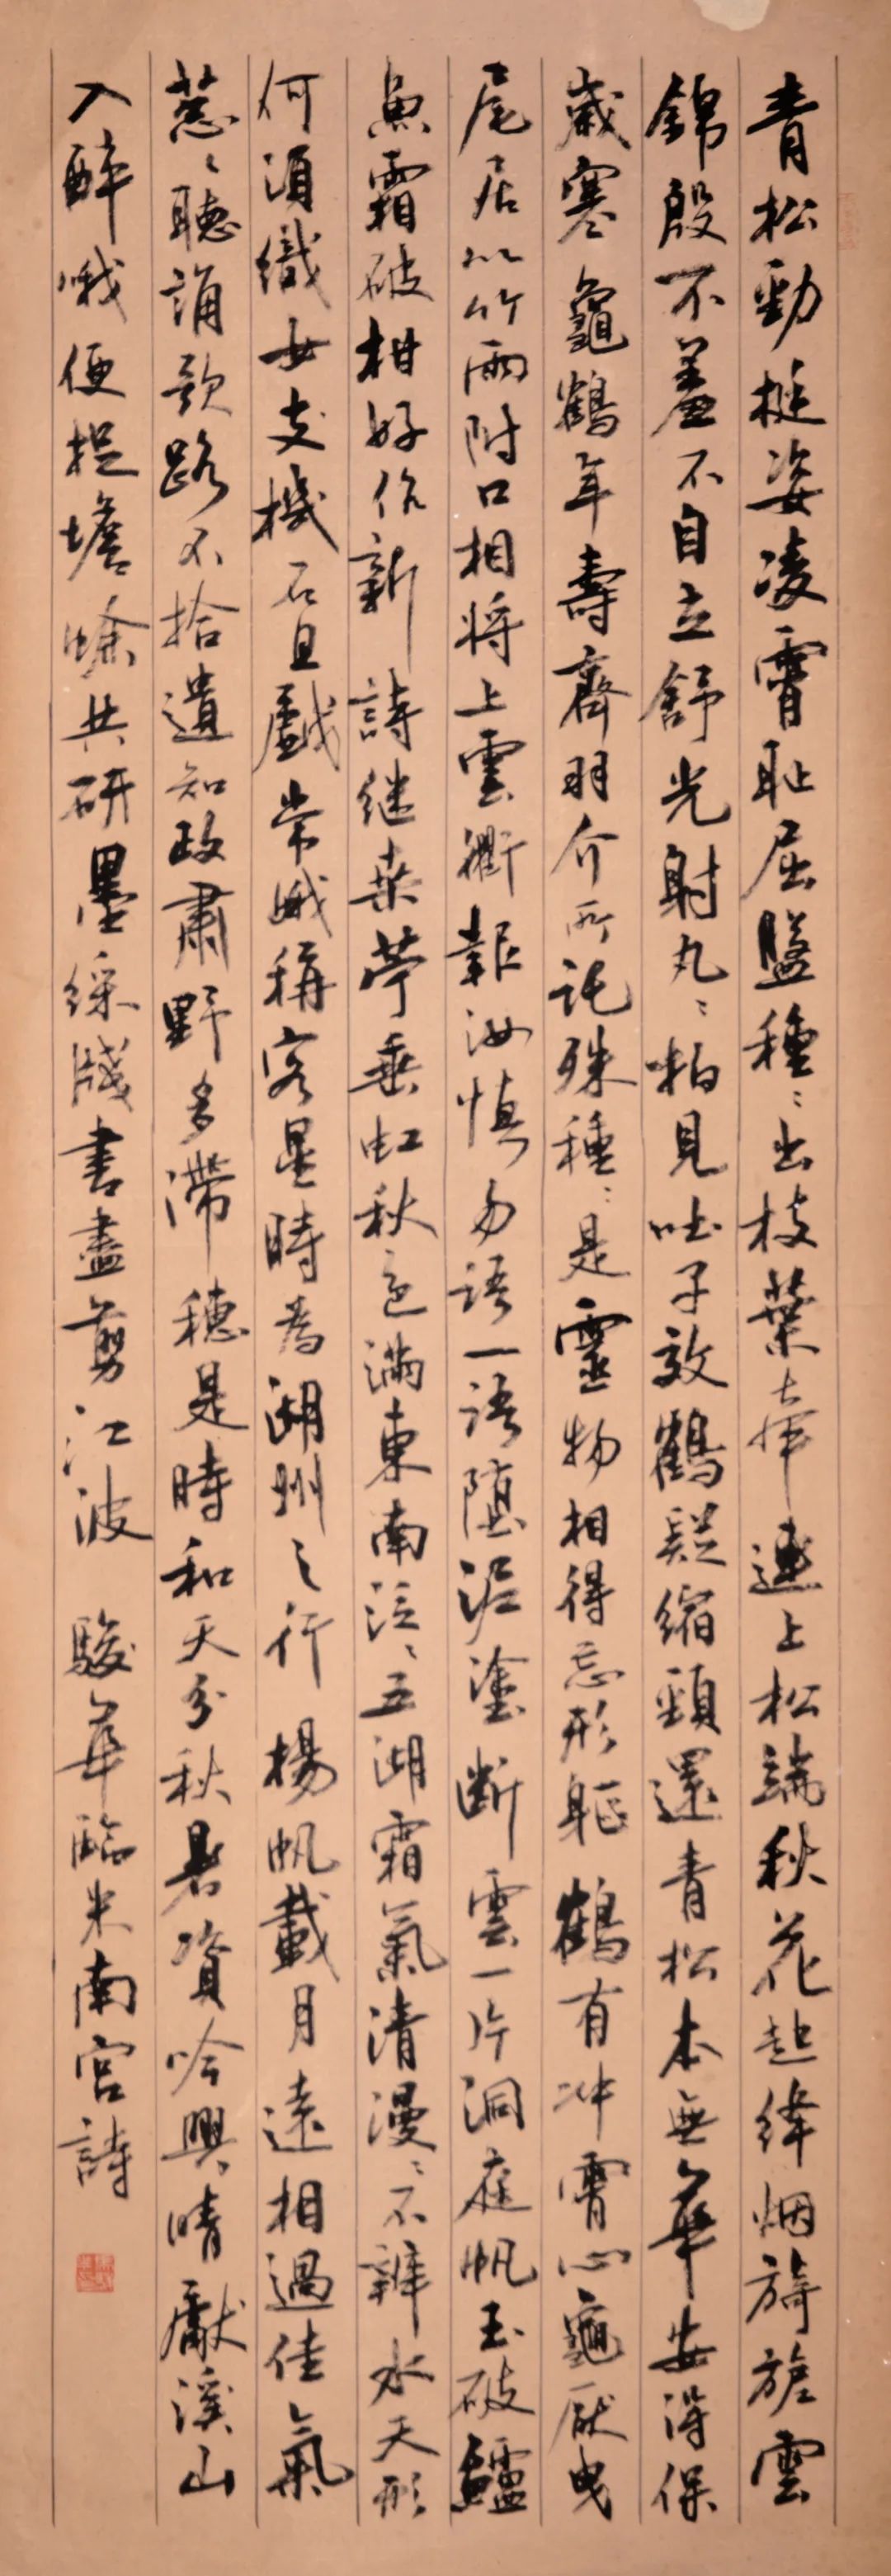 青松勁挺姿凌霄耻屈盤種〻出枝葉牽連上松端秋花起絳烟旖旎雲
錦殷不羞不自立舒光射丸〻柏見吐子效鶴疑縮頸還青松本無華安得保
歲寒龜鶴年壽齊羽介所託殊種〻是靈物相得忘形軀鶴有冲霄心龜厭曳
尾居以竹兩附口相將上雲衢報汝慎勿語一語墮泥塗斷雲一片洞庭帆玉破鱸
魚霜破柑好作新詩继桑苧垂虹秋色滿東南泛〻五湖霜氣清漫〻不辨水天形
何須織女支機石且戲常娥稱客星時爲湖州之行揚帆載月遠相過佳氣
葱〻聽誦歌路不拾遺知政肅野多滯穗是時和天分秋暑資吟興晴獻溪山
入醉哦便捉蟾蜍共研墨綵牋書盡剪江波 駿華臨米南宮詩